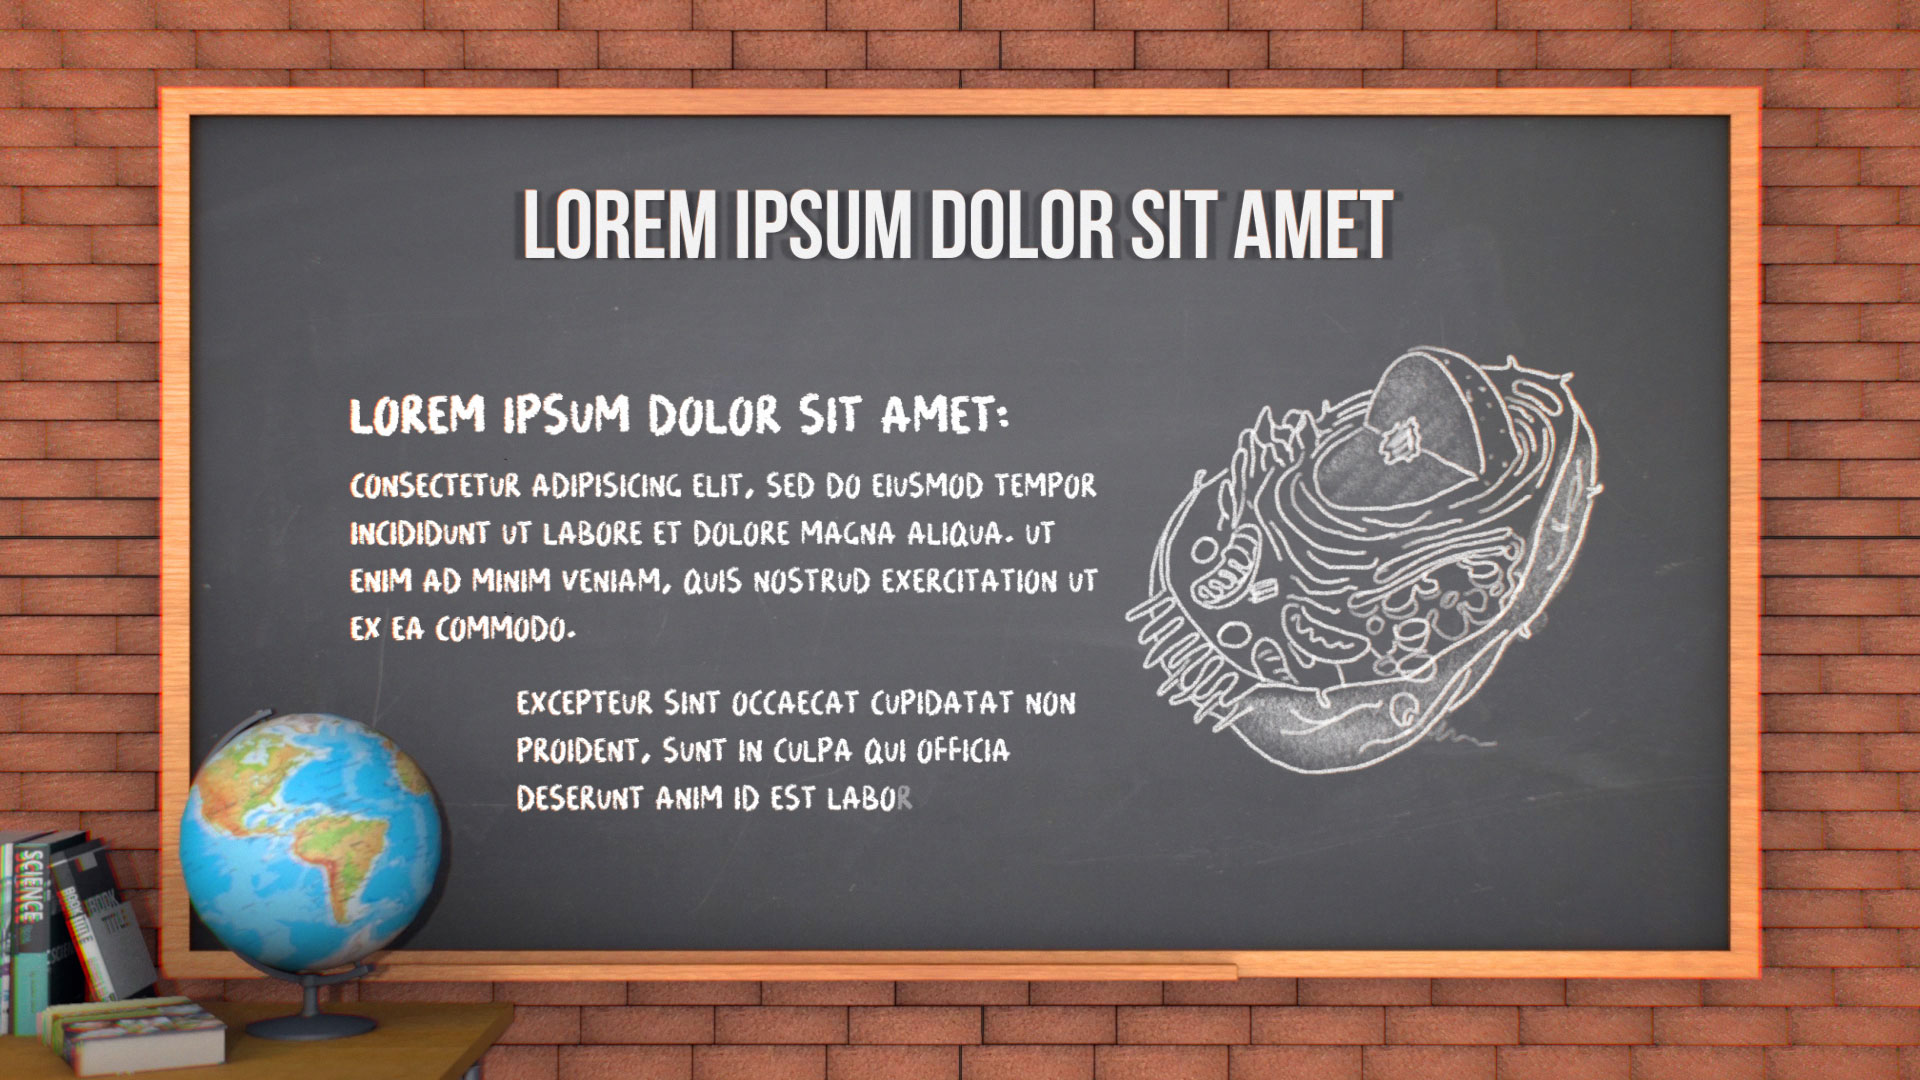 LOREM IPSUM DOLOR SIT AMET
LOREM IPSUM DOLOR SIT AMET:
CONSECTETUR ADIPISICING ELIT, SED DO EIUSMOD TEMPOR
INCIDIDUNT UT LABORE ET DOLORE MAGNA ALIQUA. UT
ENIM AD MINIM VENIAM, QUIS NOSTRUD EXERCITATION UT
EX EA COMMODO.
EXCEPTEUR SINT OCCAECAT CUPIDATAT NON
PROIDENT, SUNT IN CULPA QUI OFFICIA
DESERUNT ANIM ID EST LABOR
SCIENCE
BOOK TITLE
TITLE